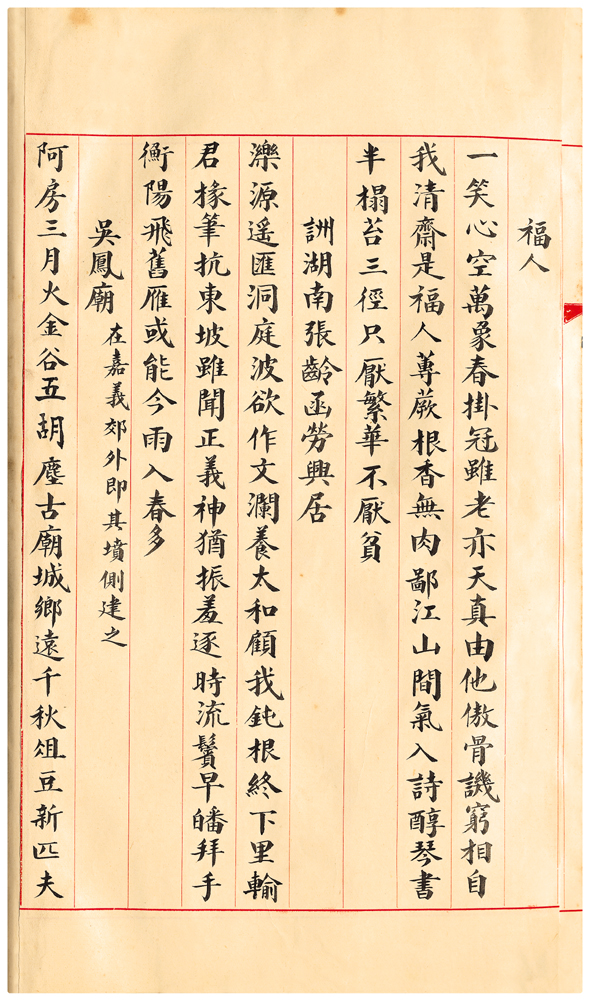 福人
一笑心空萬象春掛冠雖老亦天真由他傲骨譏窮相自
我清齋是福人蓴蕨根香無肉鄙江山間氣入詩醇琴書
半榻苔三徑只厭繁華不厭貧
詶湖南張齡函勞興居
濼源遥匯洞庭波欲作文瀾養太和顧我鈍根終下里輸
君椽筆抗東坡雖聞正義神猶振羞逐時流鬢早皤拜手
衡陽飛舊雁或能今雨入春多
吳鳳廟在嘉義郊外即其墳側建之
阿房三月火金谷五胡塵古廟城鄉遠千秋俎豆新匹夫